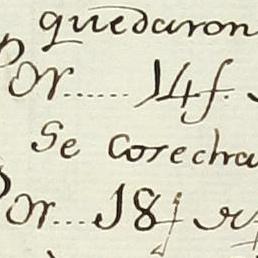 quedaron
Por...... 14f.
Se cosecha
Por... 18f